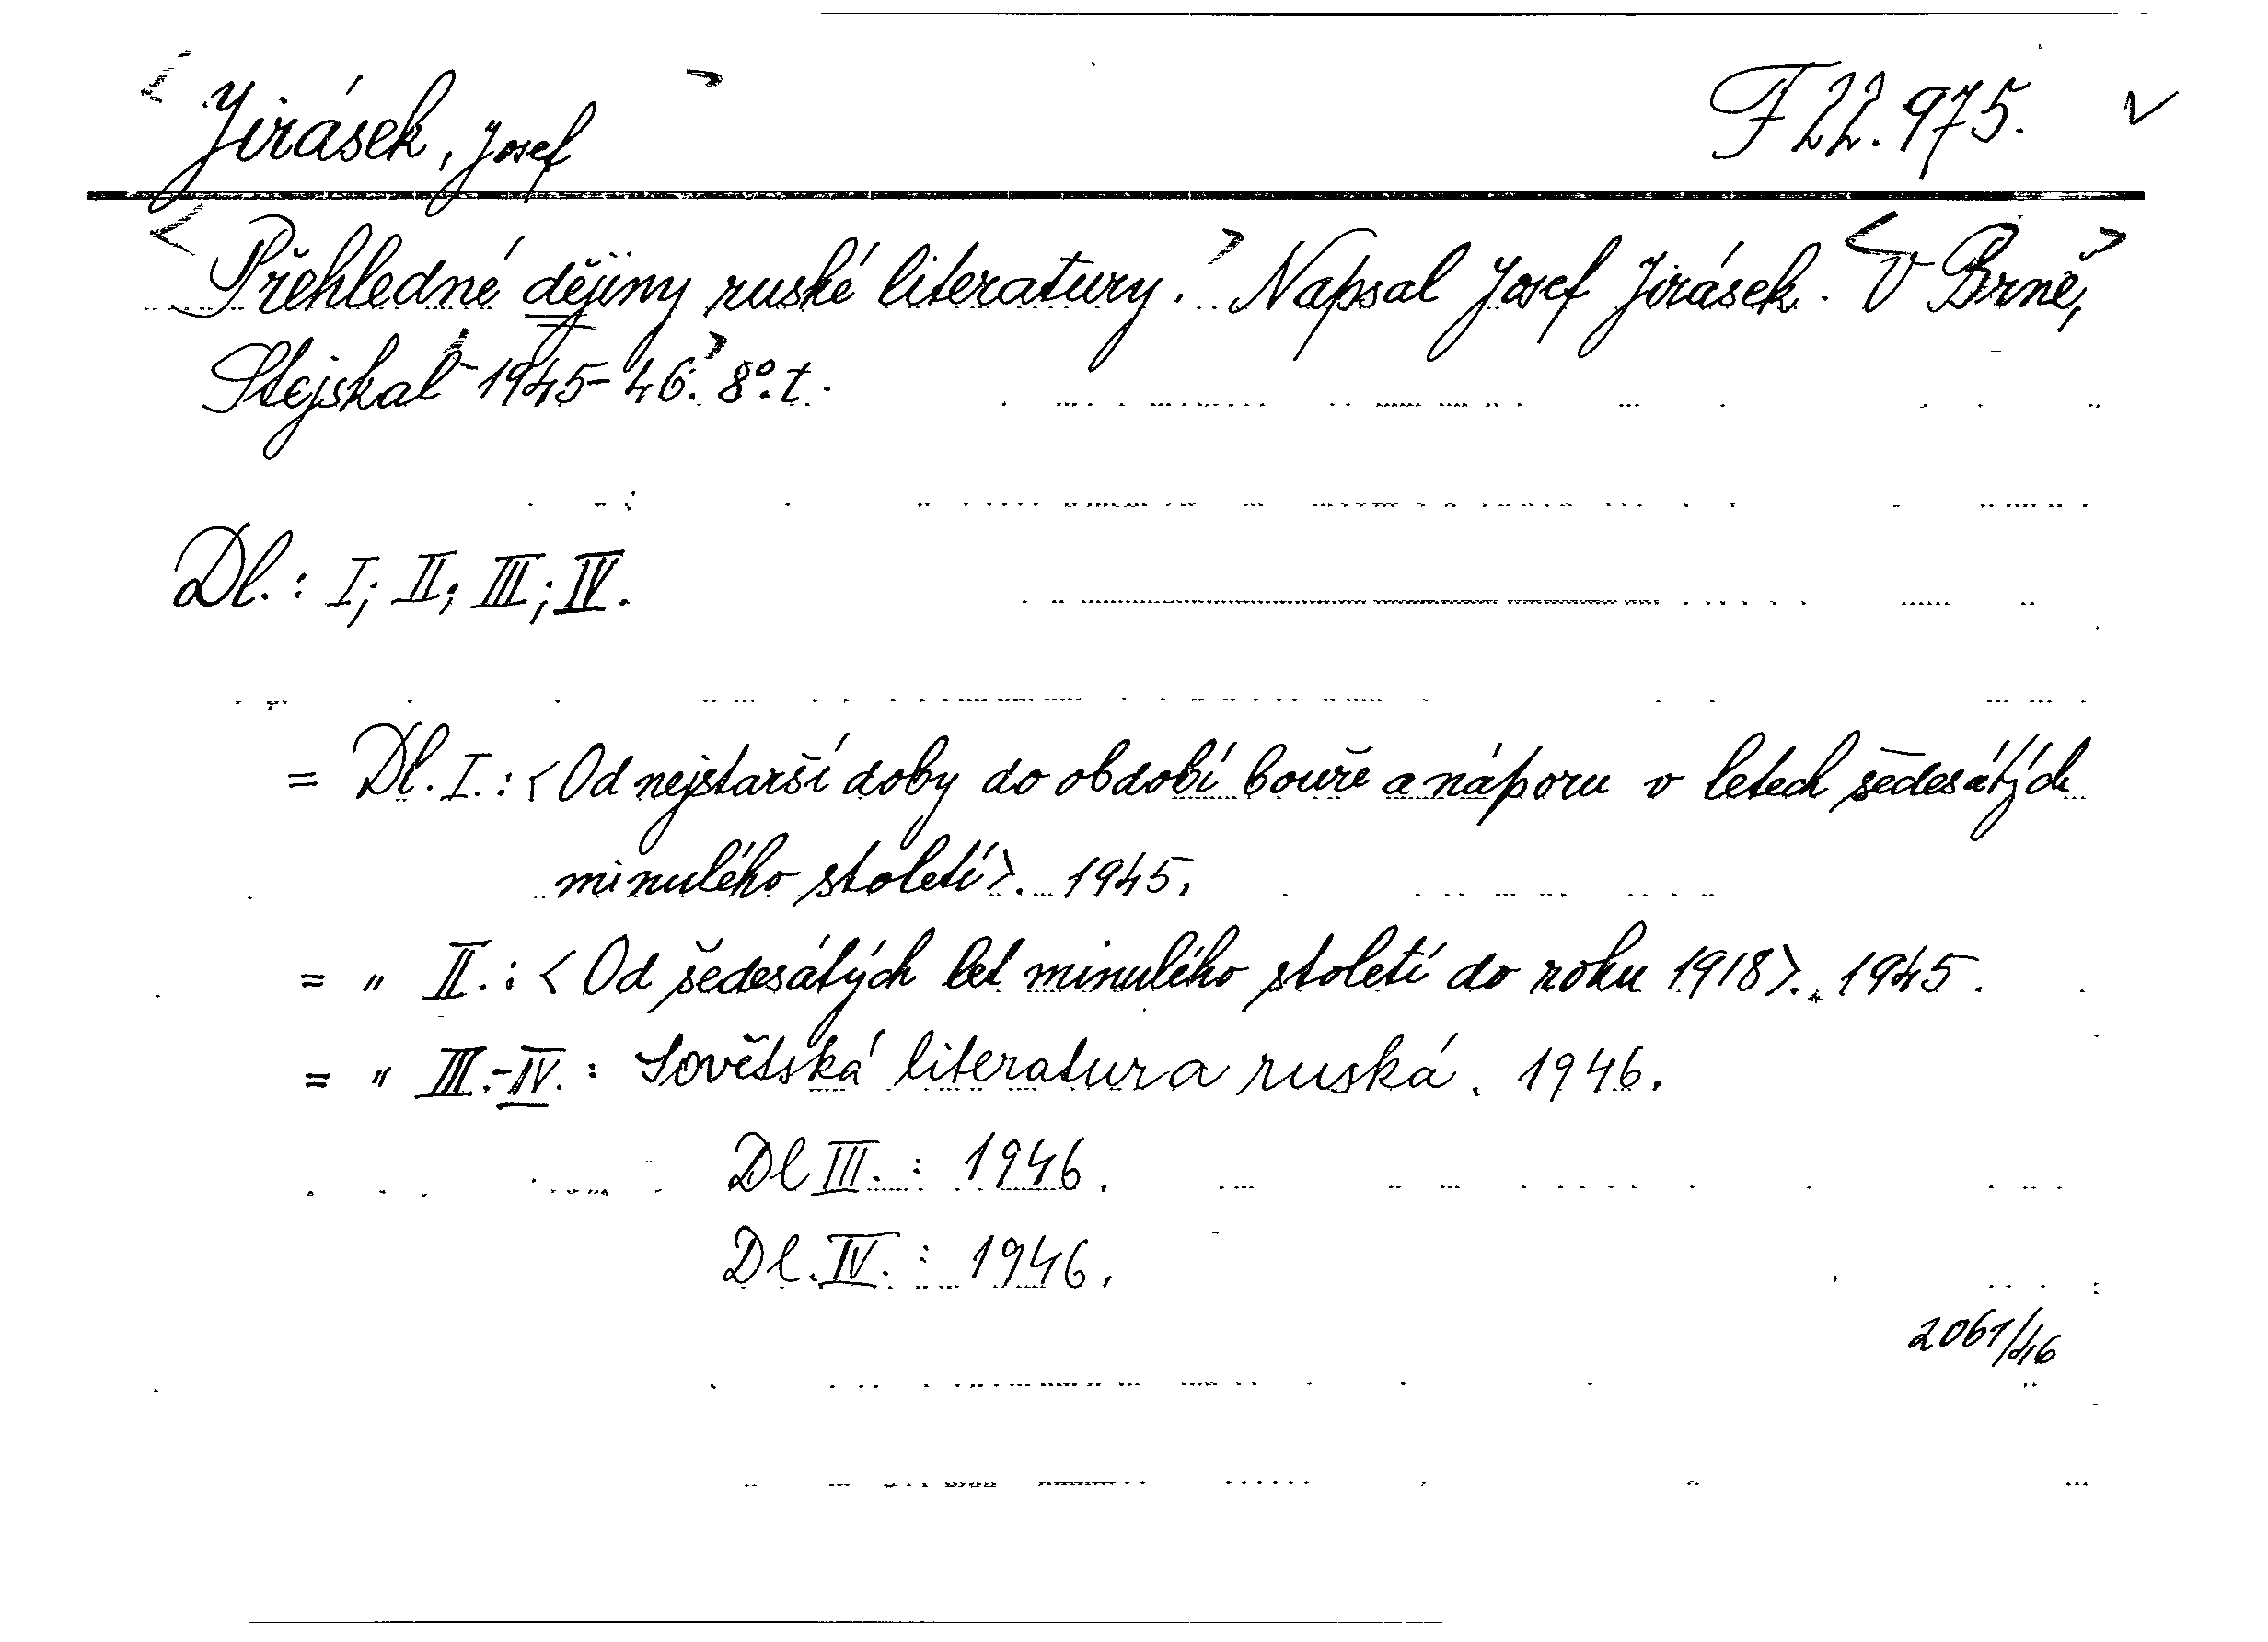 <Jirásek, Josef> F 22.975. ✓
<Přehledné dějiny ruské literatury.> Napsal Josef Jirásek. <V Brně,>
Stejskal <1945-46.> 8°. t.
Dl.: I; II; III; IV.
= Dl. I.: <Od nejstarší doby do období bouře a náporu v letech šedesátých
minulého století>. 1945.
= " II.: <Od šedesátých let minulého století do roku 1918>. 1945.
= " III.-IV.: Sovětská literatura ruská. 1946.
Dl III.: 1946.
Dl. IV.: 1946.
2061/46